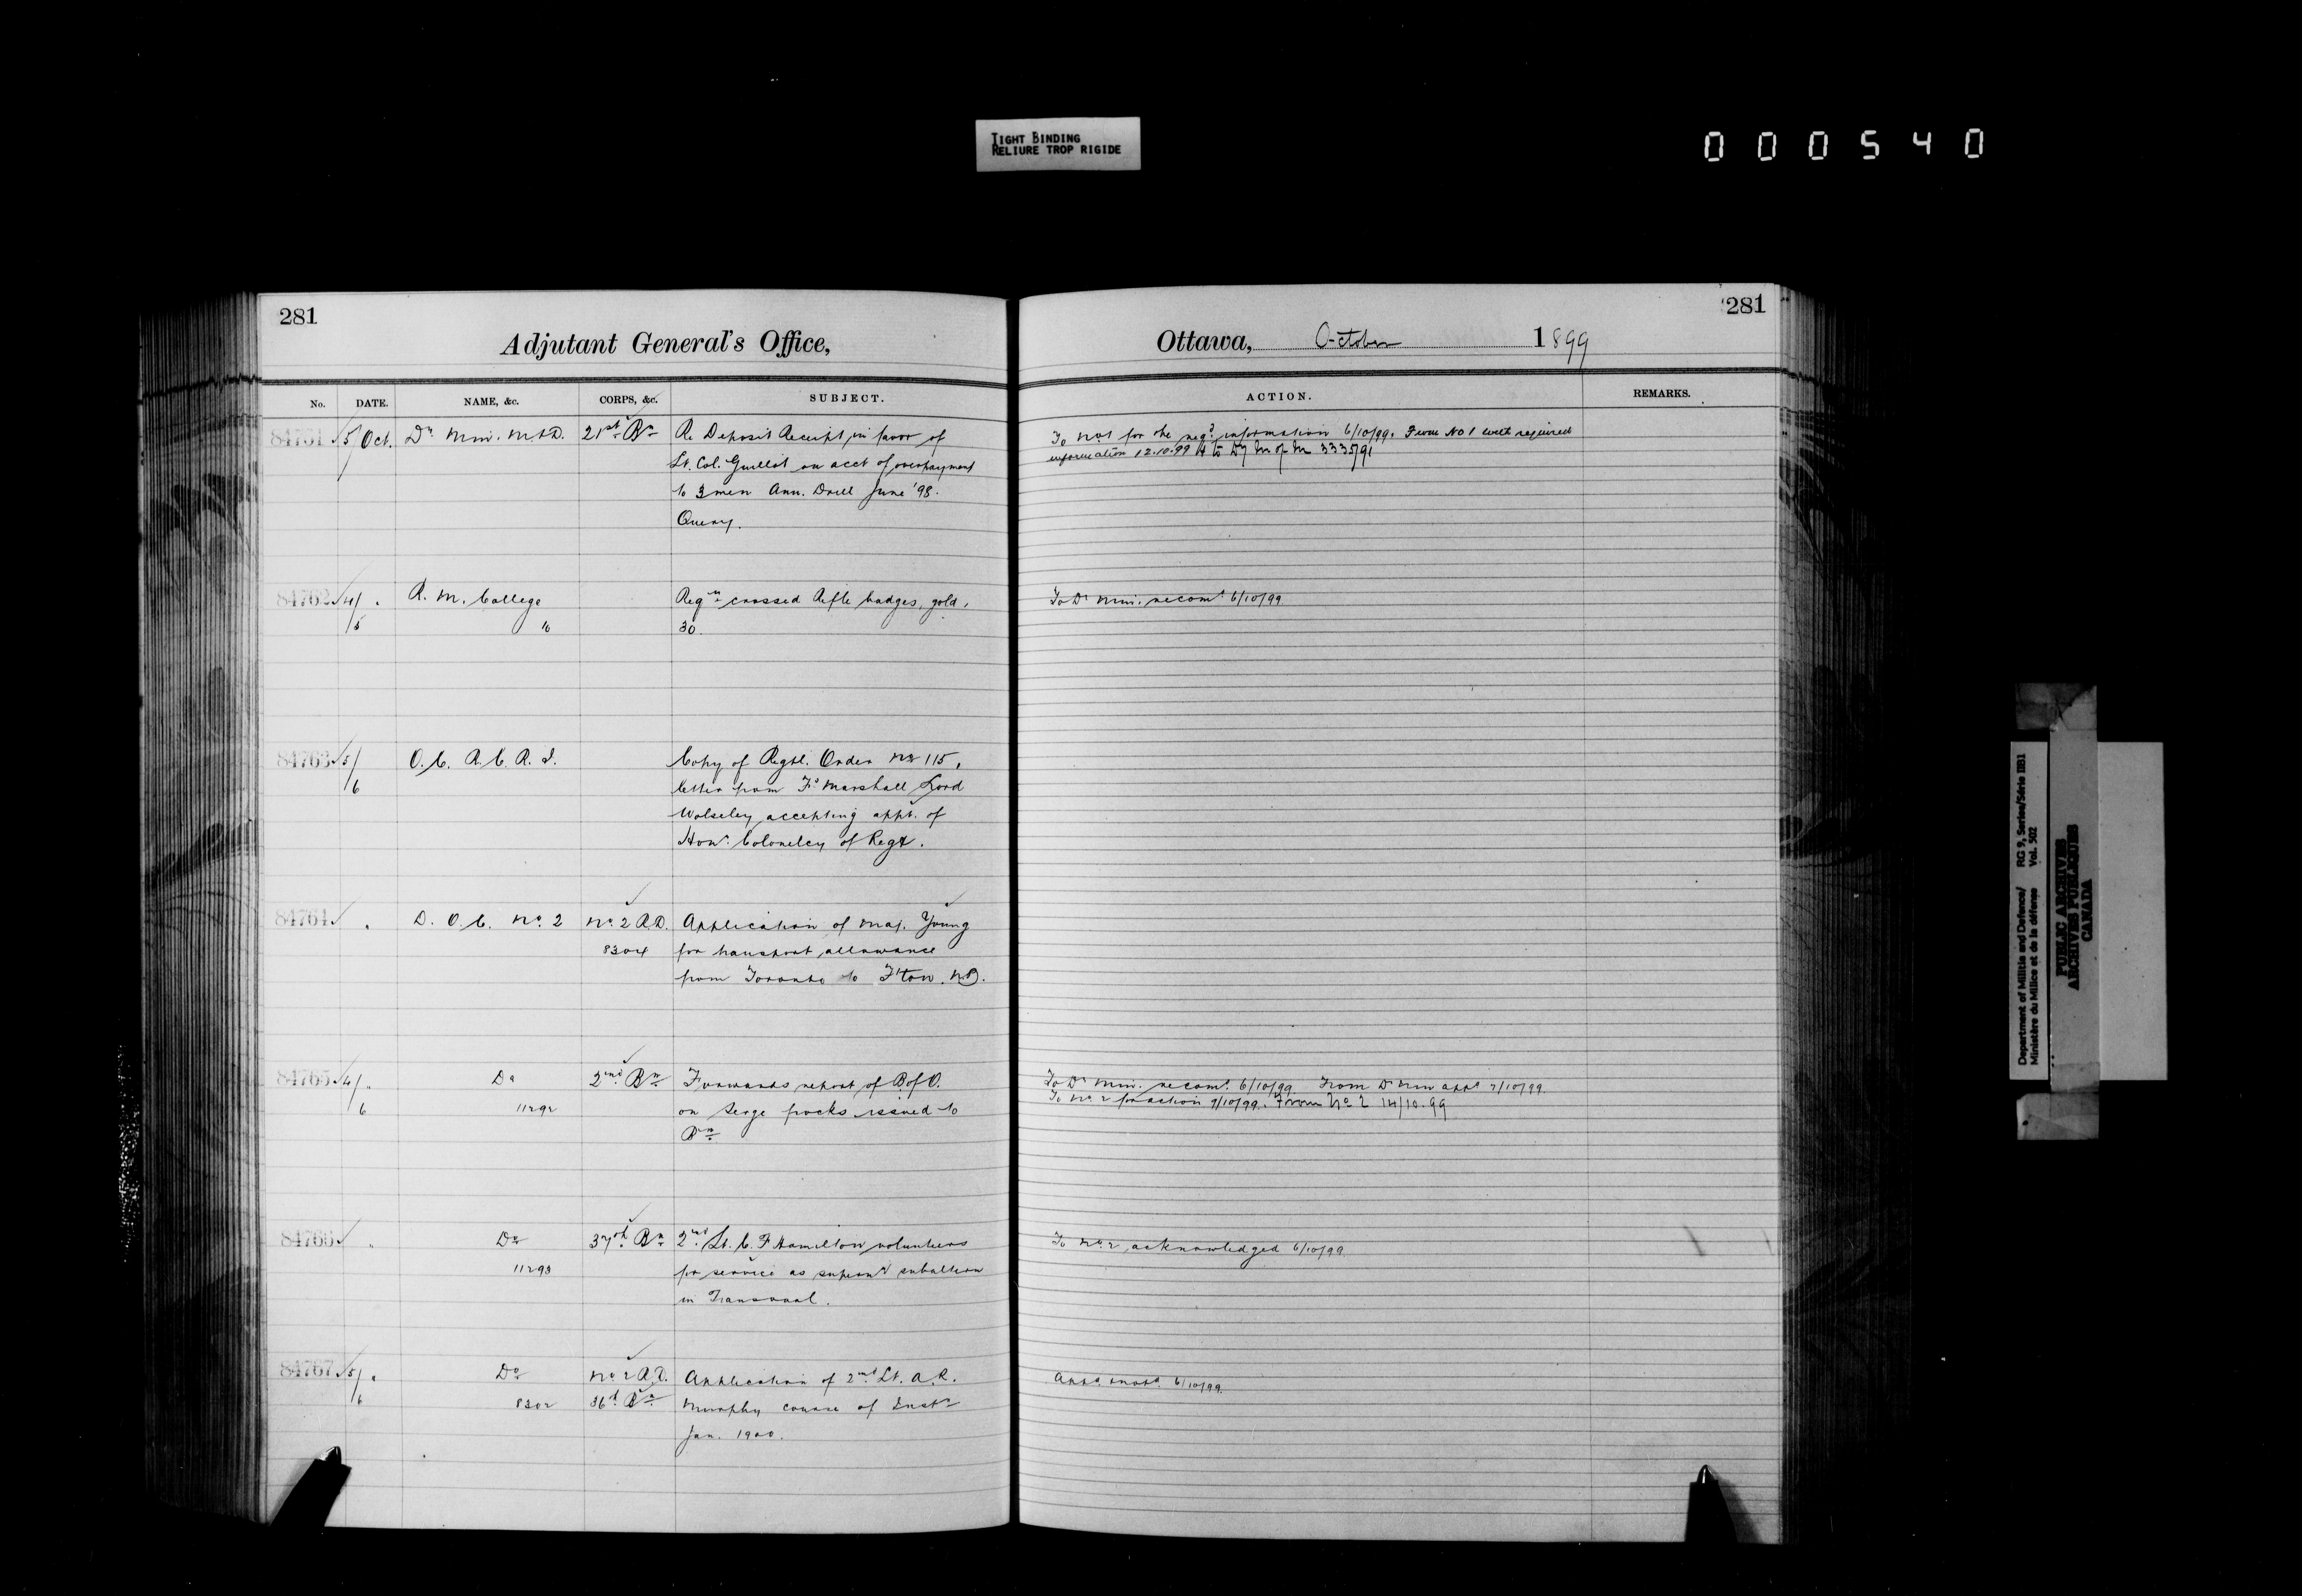 TIGHT BINDING
RELIURE TROP RIGIDE
000540
281
Adjutant General's Office,
No. DATE. NAME, &c. CORPS, &c. SUBJECT.
84761 5/ Oct. Dy Min. M. & D. 21st Bn Re Deposit Receipt in favor of
Lt. Col. Guillot on acct of overpayment
to 3 men Ann. Drill June '98.
Query.
84762 4/ " R. M. College Reqn crossed Rifle badges, gold,
/5 16 30.
84763 5/ O. C. R. C. R. I. Copy of Regtl. Order No 115,
/6 letter from Fd Marshall Lord
Wolseley accepting appt. of
Hony. Colonelcy of Regt.
84764 " D. O. C. No. 2 No. 2 R.D. Application of Maj. Young
8304 for transport allowance
from Toronto to F'ton. NB.
84765 4/ " Do 2nd Bn Forwards report of B. of O.
/6 11292 on serge frocks issued to
Bn
84766 " Do 37th Bn 2nd Lt. C. F Hamilton volunteers
11293 for service as supery subaltern
in Transvaal.
84767 5/ " Do No 2 R.D. Application of 2nd Lt. A. R.
/6 8302 36th Bn Murphy course of Instn
Jan. 1900.
281
Ottawa, October 1899
ACTION. REMARKS.
To No 1 for the reqd information 6/10/99. From No 1 with required
information 12.10.99 to Dy M of M 3335/91
To Dy Min. recomd 6/10/99
To Dy Min. recomd 6/10/99 From Dy Min appd 7/10/99.
To No 2 for action 9/10/99. From No 2 14/10.99
To No. 2 acknowledged 6/10/99
6/10/99.
Department of Militia and Defence/ RG 9, Series/Série IIB1
Ministère du Milice et de la défense Vol. 502
PUBLIC ARCHIVES
ARCHIVES PUBLIQUES
CANADA